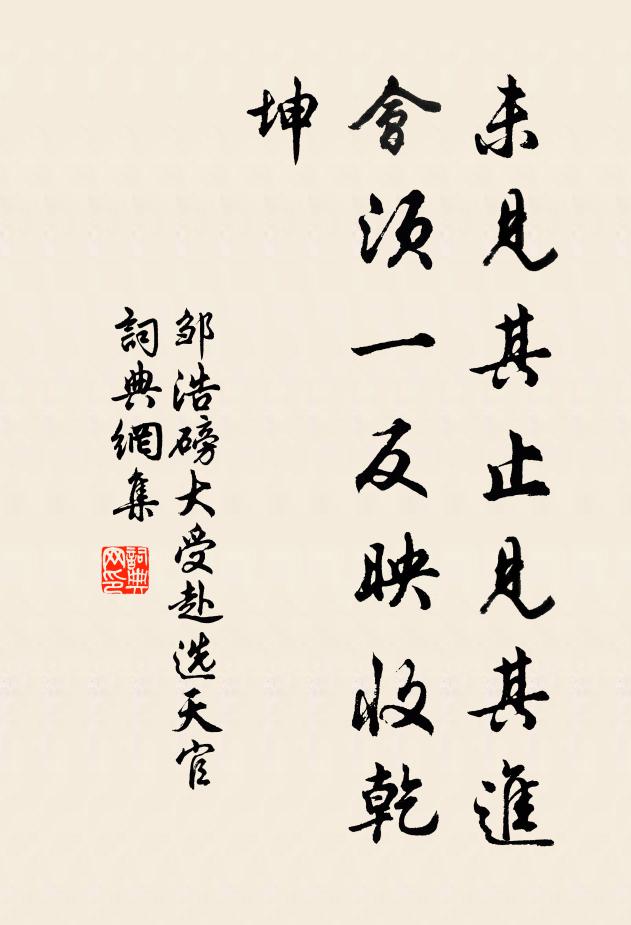 未見其止見其進
會須一反映收乾
坤
邹浩磅大受赴选天官
詞典網集
詞典网印